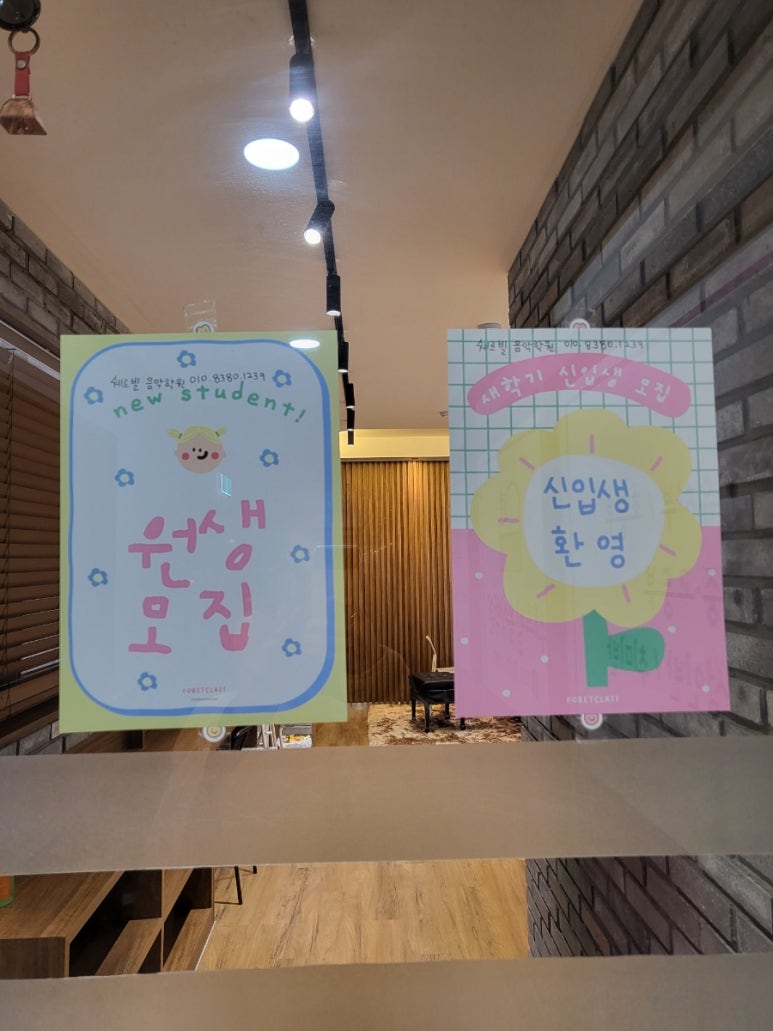 쉐르빌 음악학원 010.8380.1239
new student!
원생
모집
FORETCLASS
쉐르빌 음악학원 010.8380.1239
새학기 신입생 모집
신입생
환영
FORETCLASS